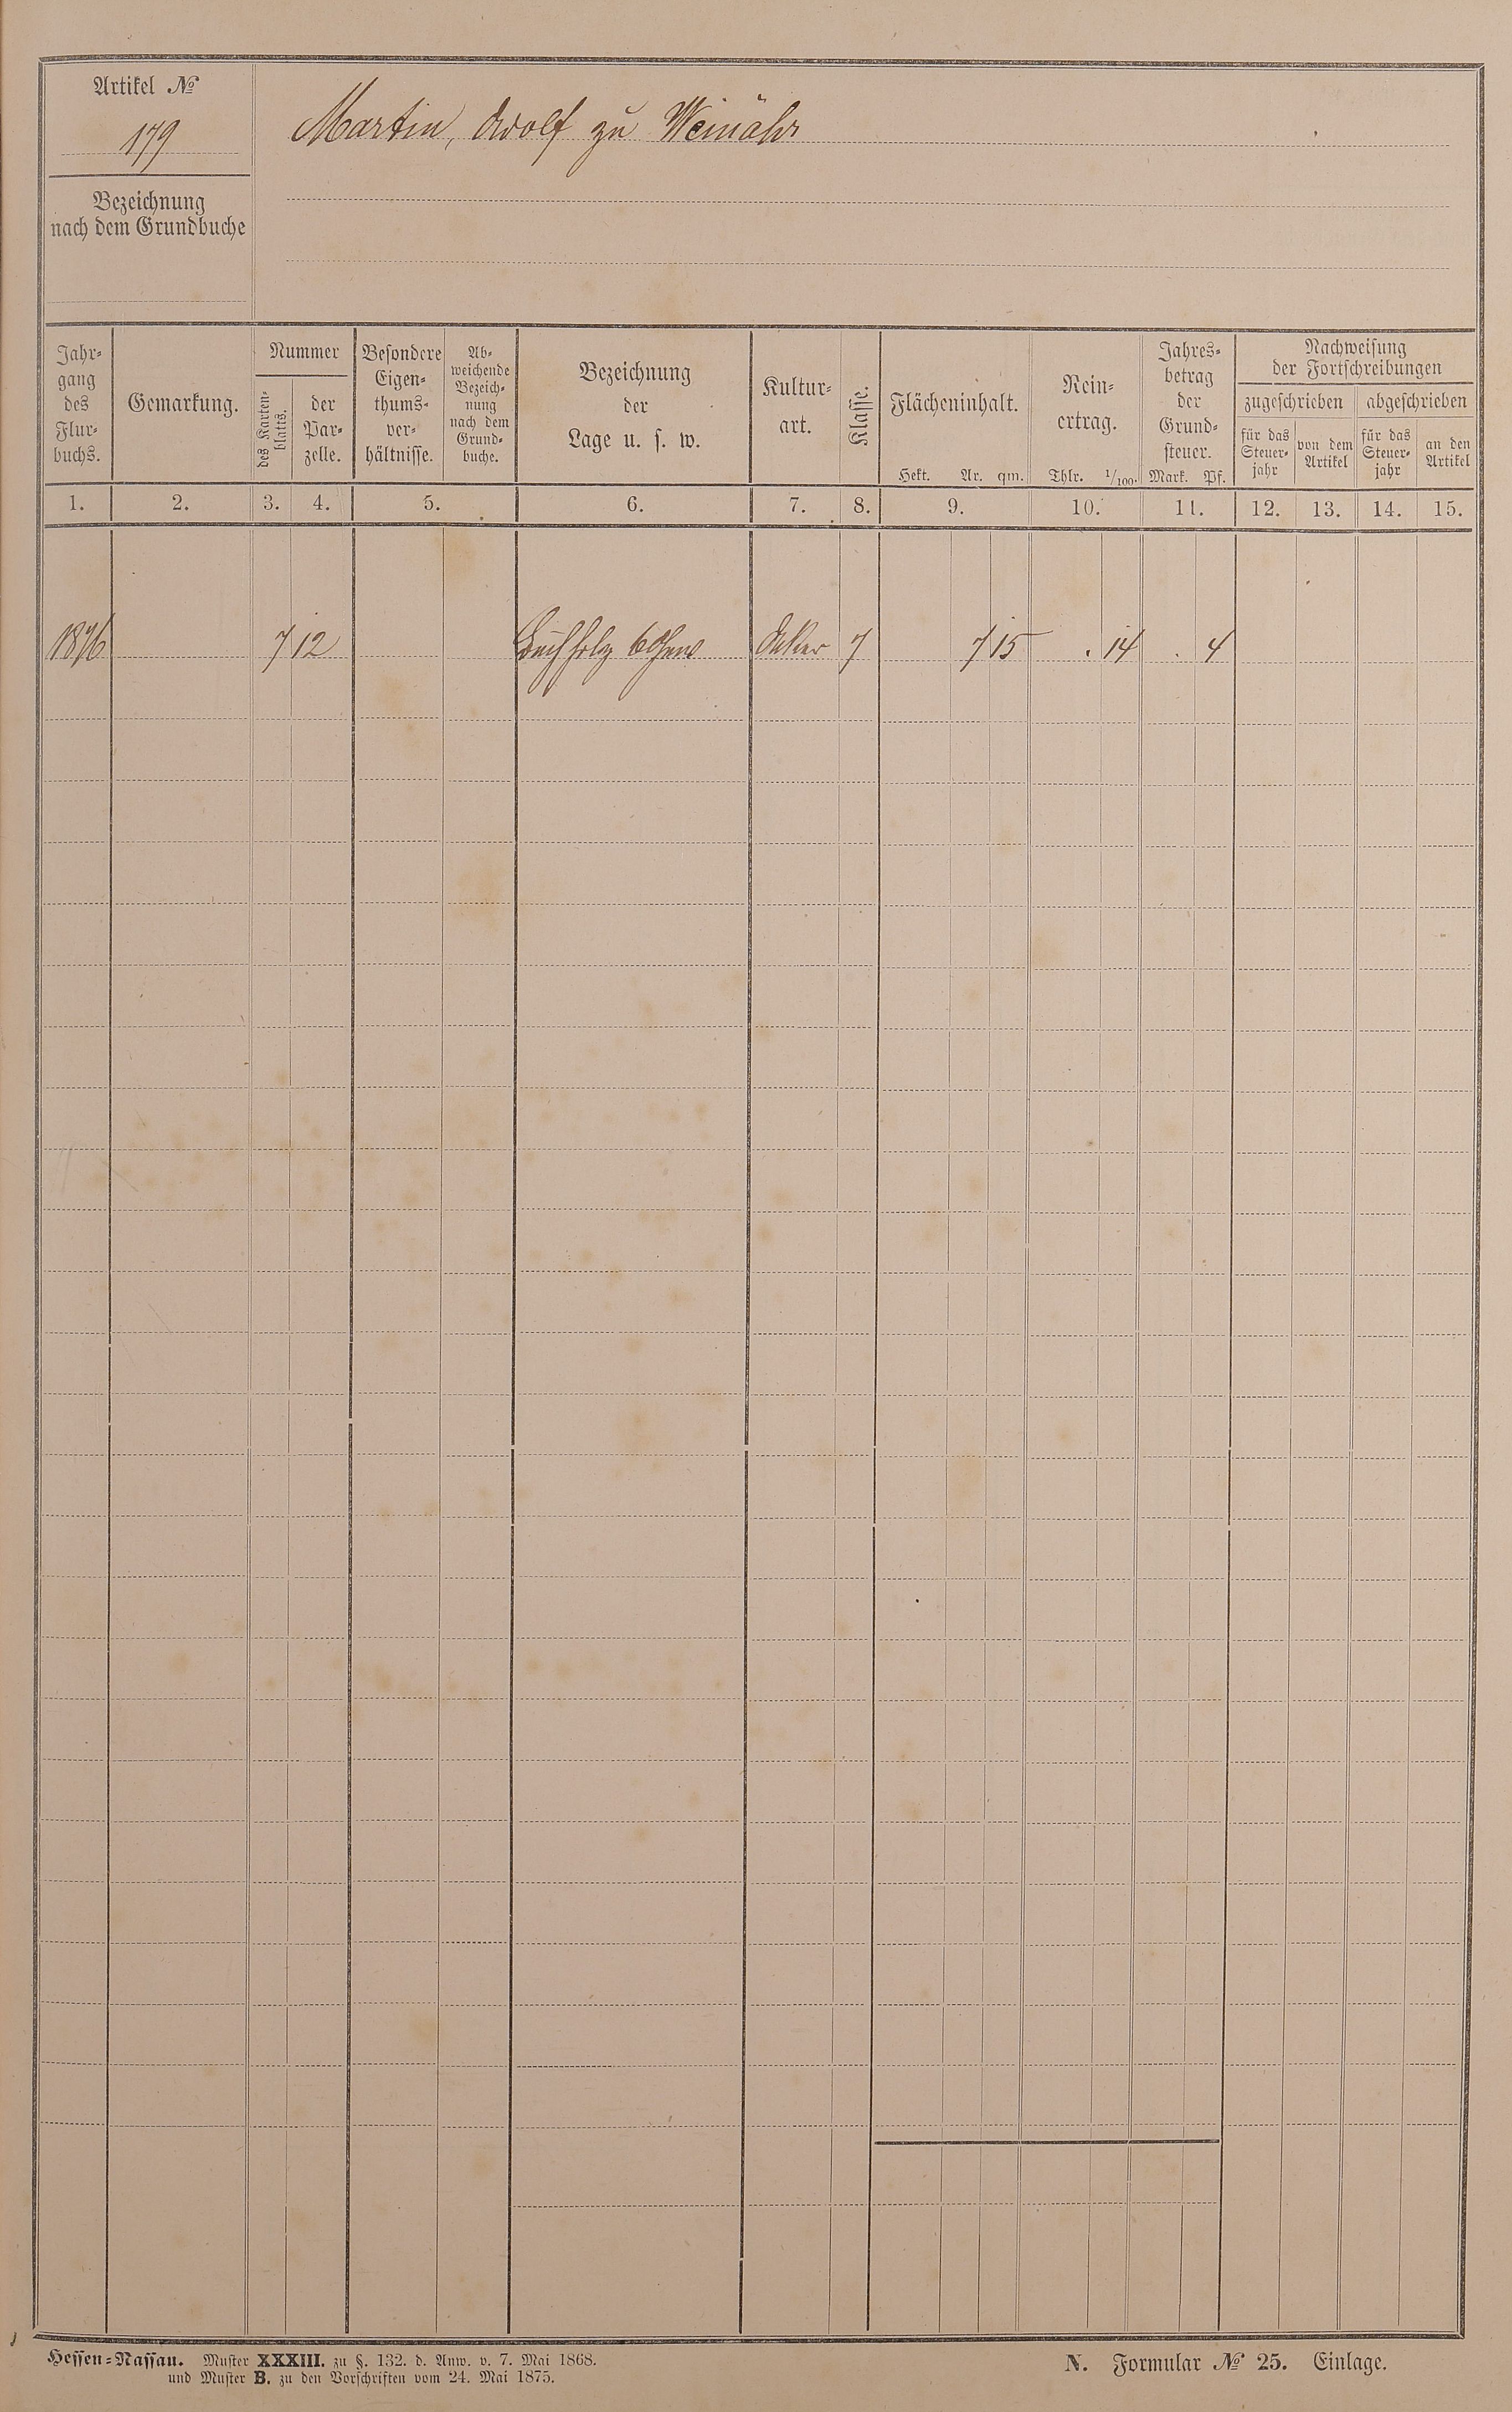 Artikel №
179
Martin, Adolf zu Weinähr
Bezeichnung
nach dem Grundbuche
Jahr-
gang
des
Flur-
buchs.
Gemarkung.
Nummer
des Karten-
blatts.
der
Par-
zelle.
Besondere
Eigen-
thums-
ver-
hältnisse.
Ab-
weichende
Bezeich-
nung
nach dem
Grund-
buche.
Bezeichnung
der
Lage u. s. w.
Kultur-
art.
Klasse.
Flächeninhalt.
Hekt. Ar. qm.
Rein-
ertrag.
Thlr. 1/100.
Jahres-
betrag
der
Grund-
steuer.
Mark. Pf.
Nachweisung
der Fortschreibungen
zugeschrieben abgeschrieben
für das
Steuer-
jahr
von dem
Artikel
für das
Steuer-
jahr
an den
Artikel
1. 2. 3. 4. 5. 6. 7. 8. 9. 10. 11. 12. 13. 14. 15.
1876 7 12 Buchholz 6 Acker 7 7 15 . 14 . 4
Hessen-Nassau. Muster XXXIII. zu §. 132. d. Anw. v. 7. Mai 1868.
und Muster B. zu den Vorschriften vom 24. Mai 1875.
N. Formular № 25. Einlage.